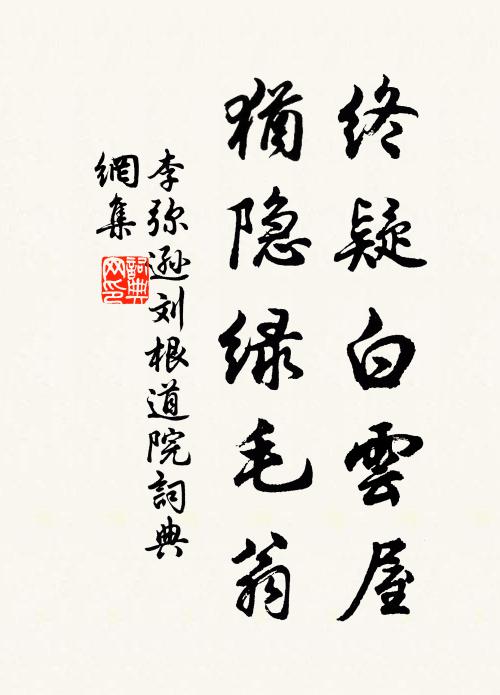 终疑白雲屋
猶隐绿毛翁
李弥遜刘根道院詞典
網集
詞典
网印